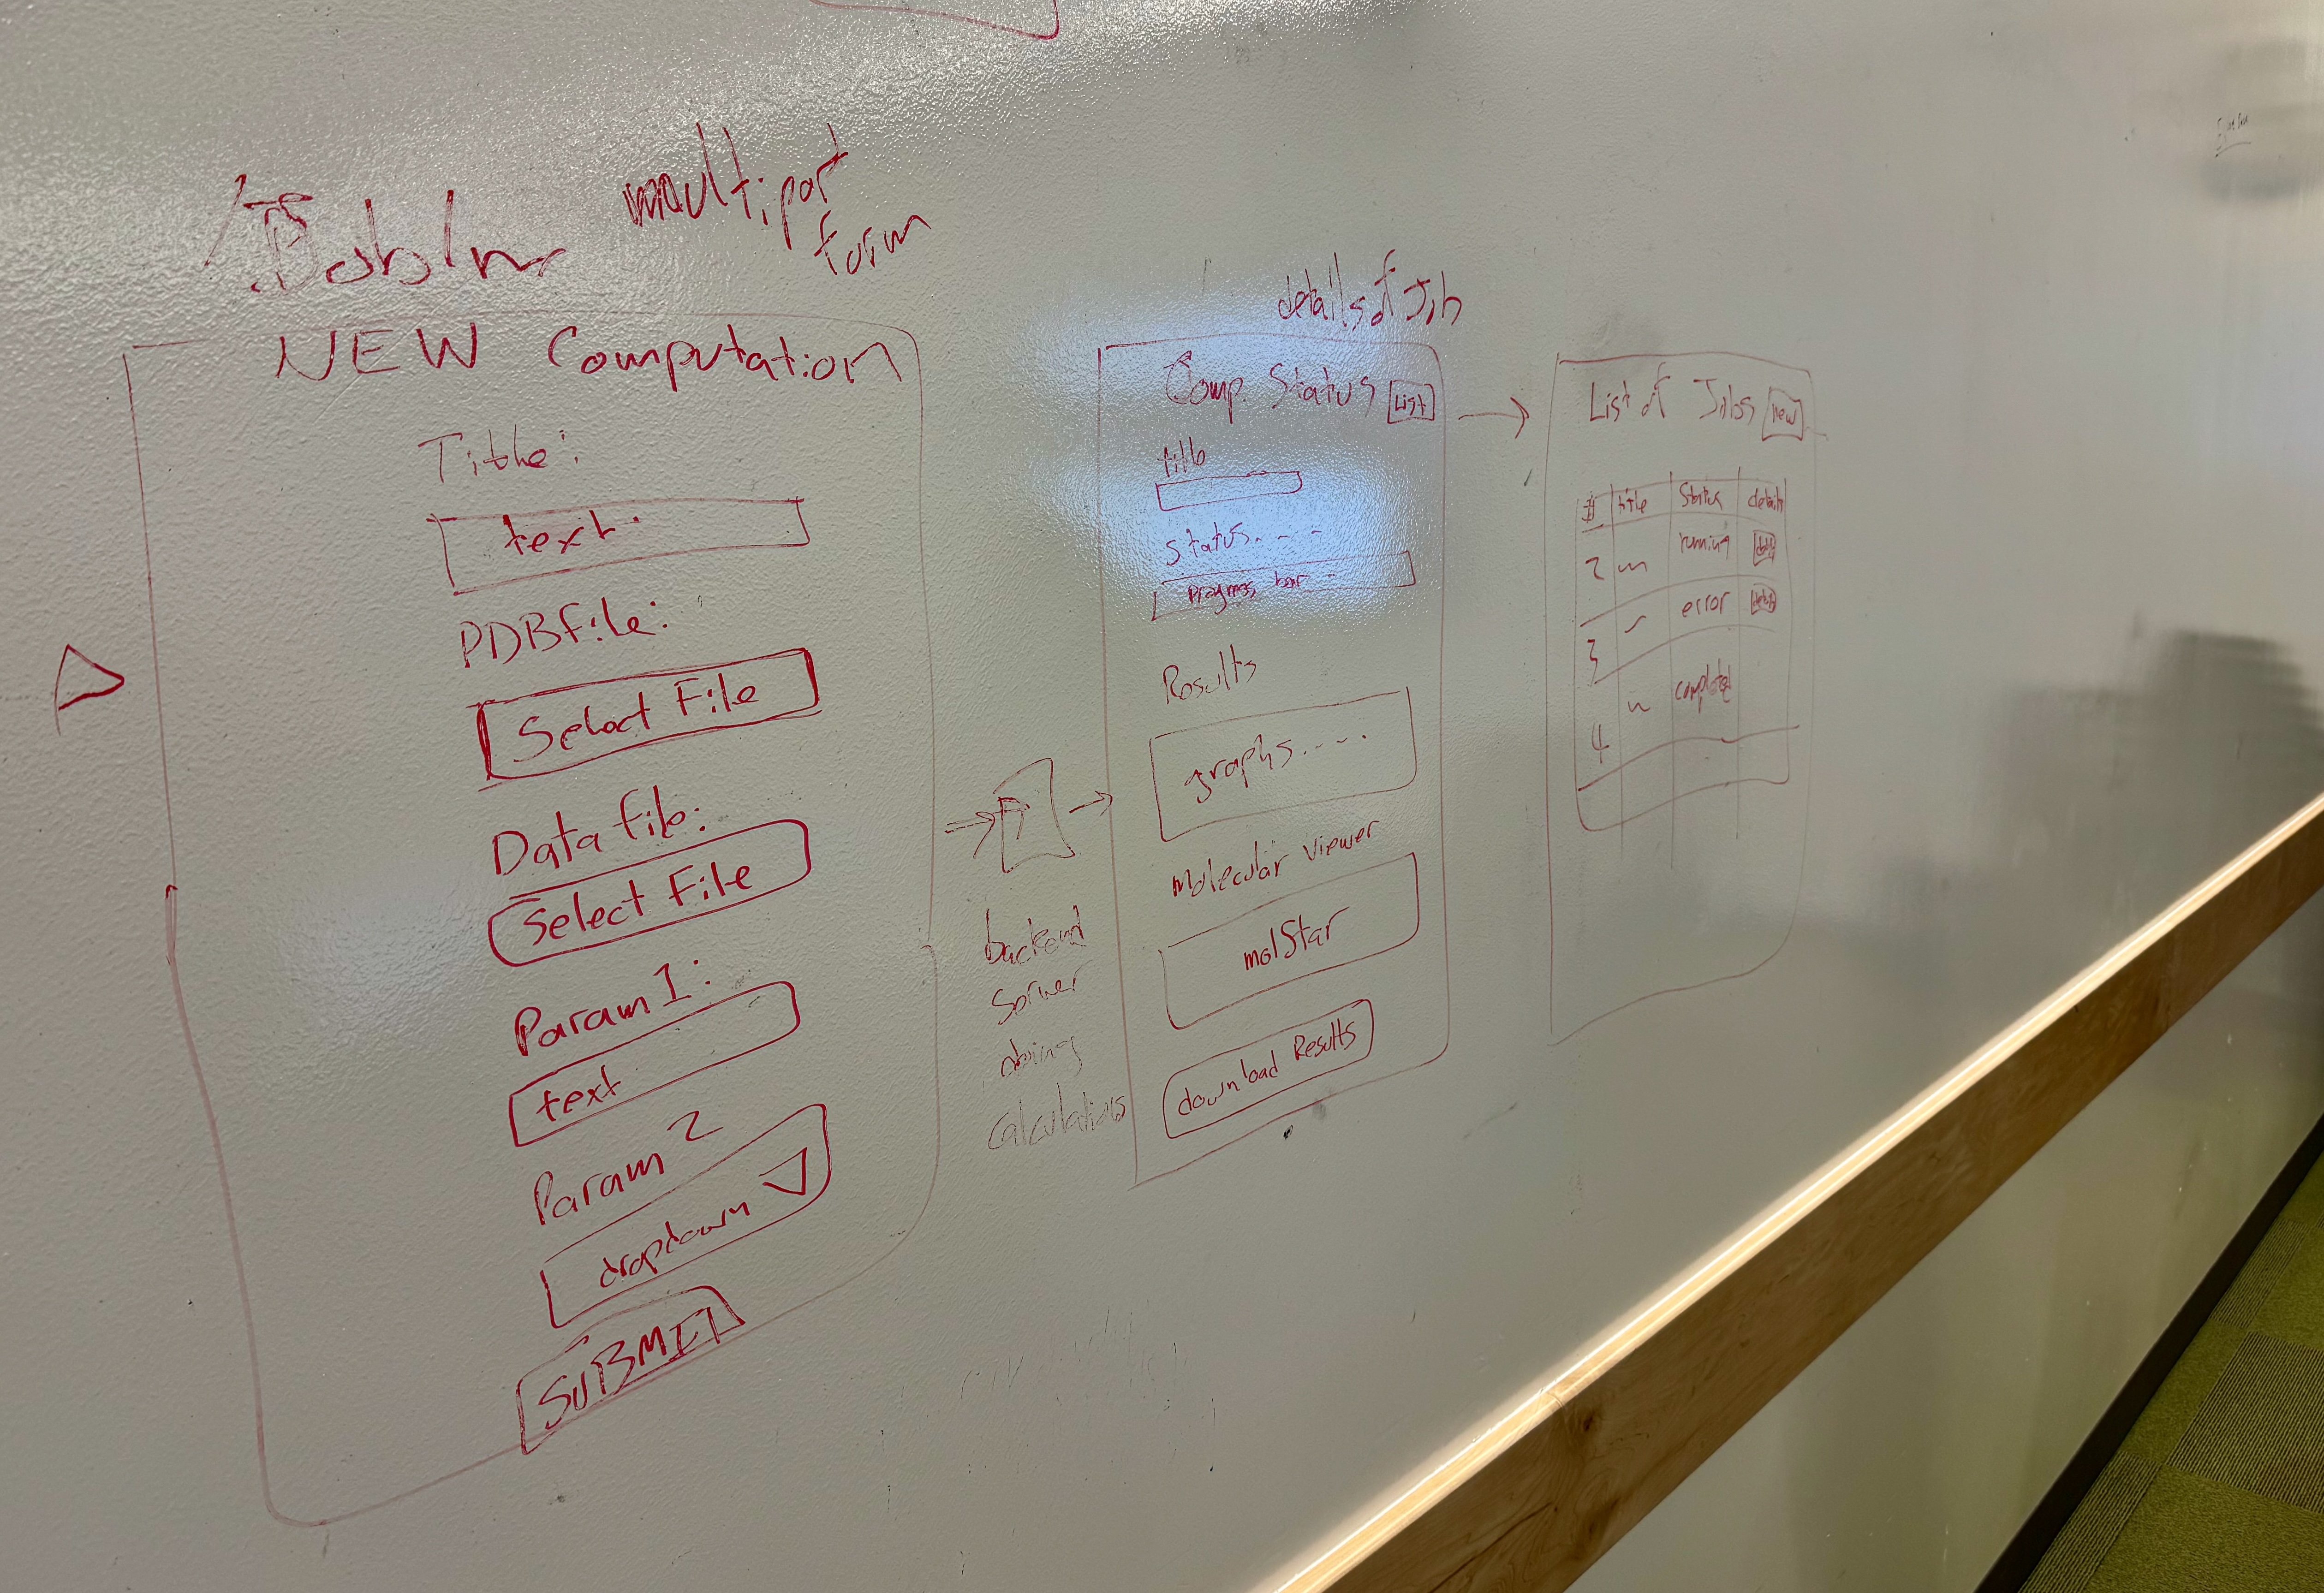 multipart
form
NEW Computation
Title:
text
PDBfile:
Select File
Data file:
Select File
Param 1:
text
Param 2
dropdown
SUBMIT
backend
server
doing
calculations
details of Job
Comp. Status List
title
status. - -
Progress bar -
Results
graphs....
Molecular Viewer
molStar
download Results
List of Jobs new
# title Status details
2 running
3 error
4 completed